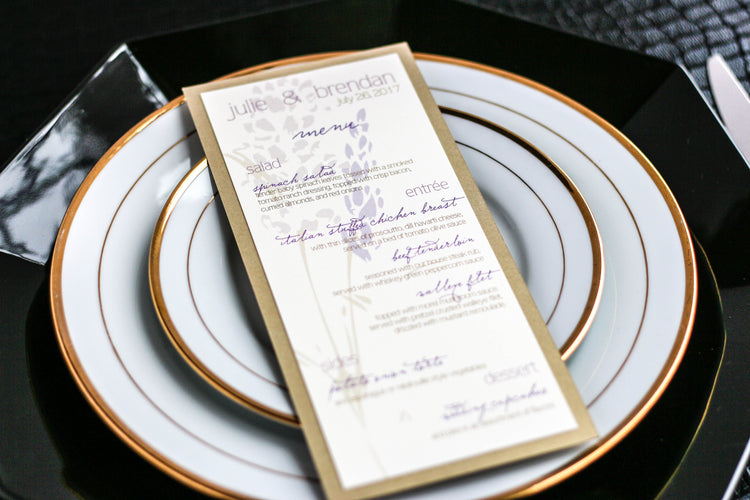 julie & brendan
July 26, 2017
menu
salad
spinach salad
tender baby spinach leaves tossed with a smoked
tomato ranch dressing, topped with crisp bacon,
curried almonds, and red onions
entrée
italian stuffed chicken breast
with thin slices of prosciutto, dill havarti cheese,
served on a bed of tomato olive sauce
beef tenderloin
seasoned with our house steak rub,
served with whiskey green peppercorn sauce
walleye filet
topped with morel mushroom sauce
served with pretzel crusted walleye filet,
drizzled with mustard remoulade
sides
potato
style vegetables
dessert
cupcakes